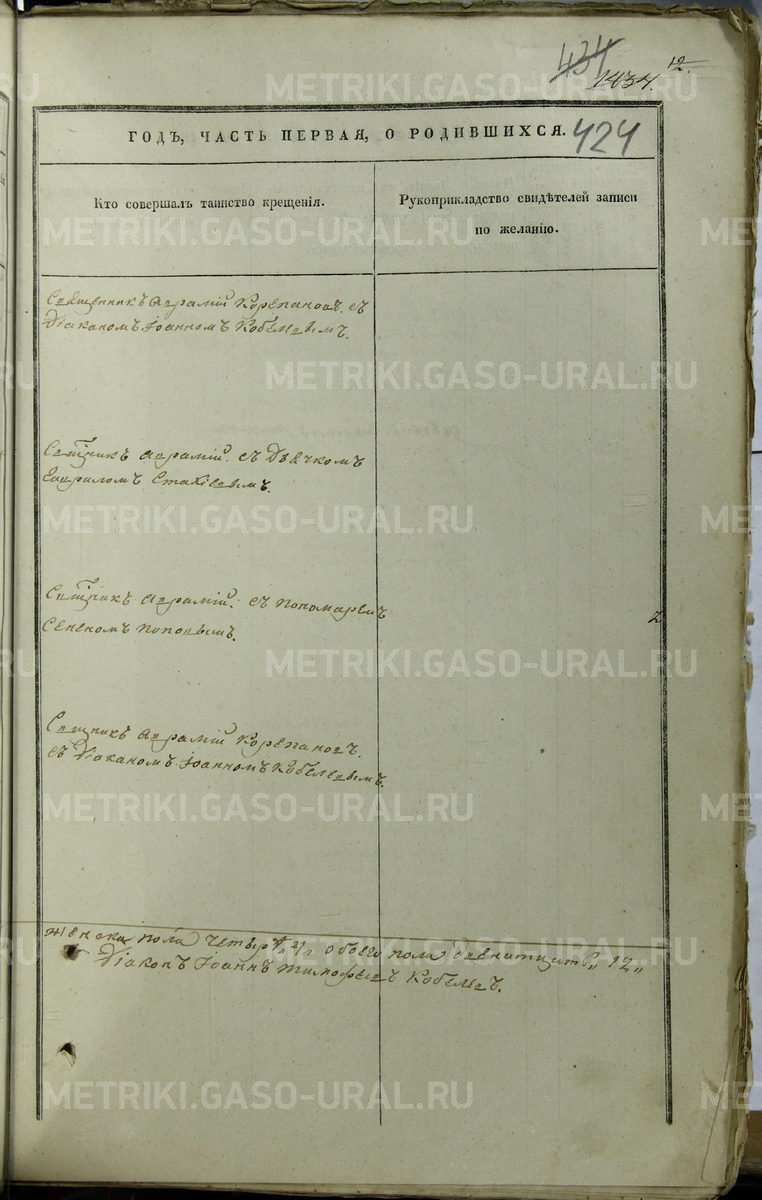 434
12.
1434.
ГОДЪ, ЧАСТЬ ПЕРВАЯ, О РОДИВШИХСЯ.
424
Кто совершалъ таинство крещенія.
Рукоприкладство свидѣтелей записи
по желанію.
Священникъ Аврамій Корепановъ съ
Діаканомъ Іоанномъ Кобелевымъ.
Свщникъ Аврамій съ Дьячкомъ
Гавриломъ Стахіевымъ.
Свщникъ Аврамій съ пономаремъ
Семеномъ Поповымъ.
Свщникъ Аврамій Корепановъ
съ Діаканомъ Іоанномъ Кобелевымъ.
женска пола четыре „4„ обоего пола двенатцать „12„
Діаконъ Іоаннъ Тимофеевъ Кобелевъ.
METRIKI.GASO-URAL.RU
METRIKI.GASO-URAL.RU
METRIKI.GASO-URAL.RU
METRIKI.GASO-URAL.RU
METRIKI.GASO-URAL.RU
METRIKI.GASO-URAL.RU
METRIKI.GASO-URAL.RU
METRIKI.GASO-URAL.RU